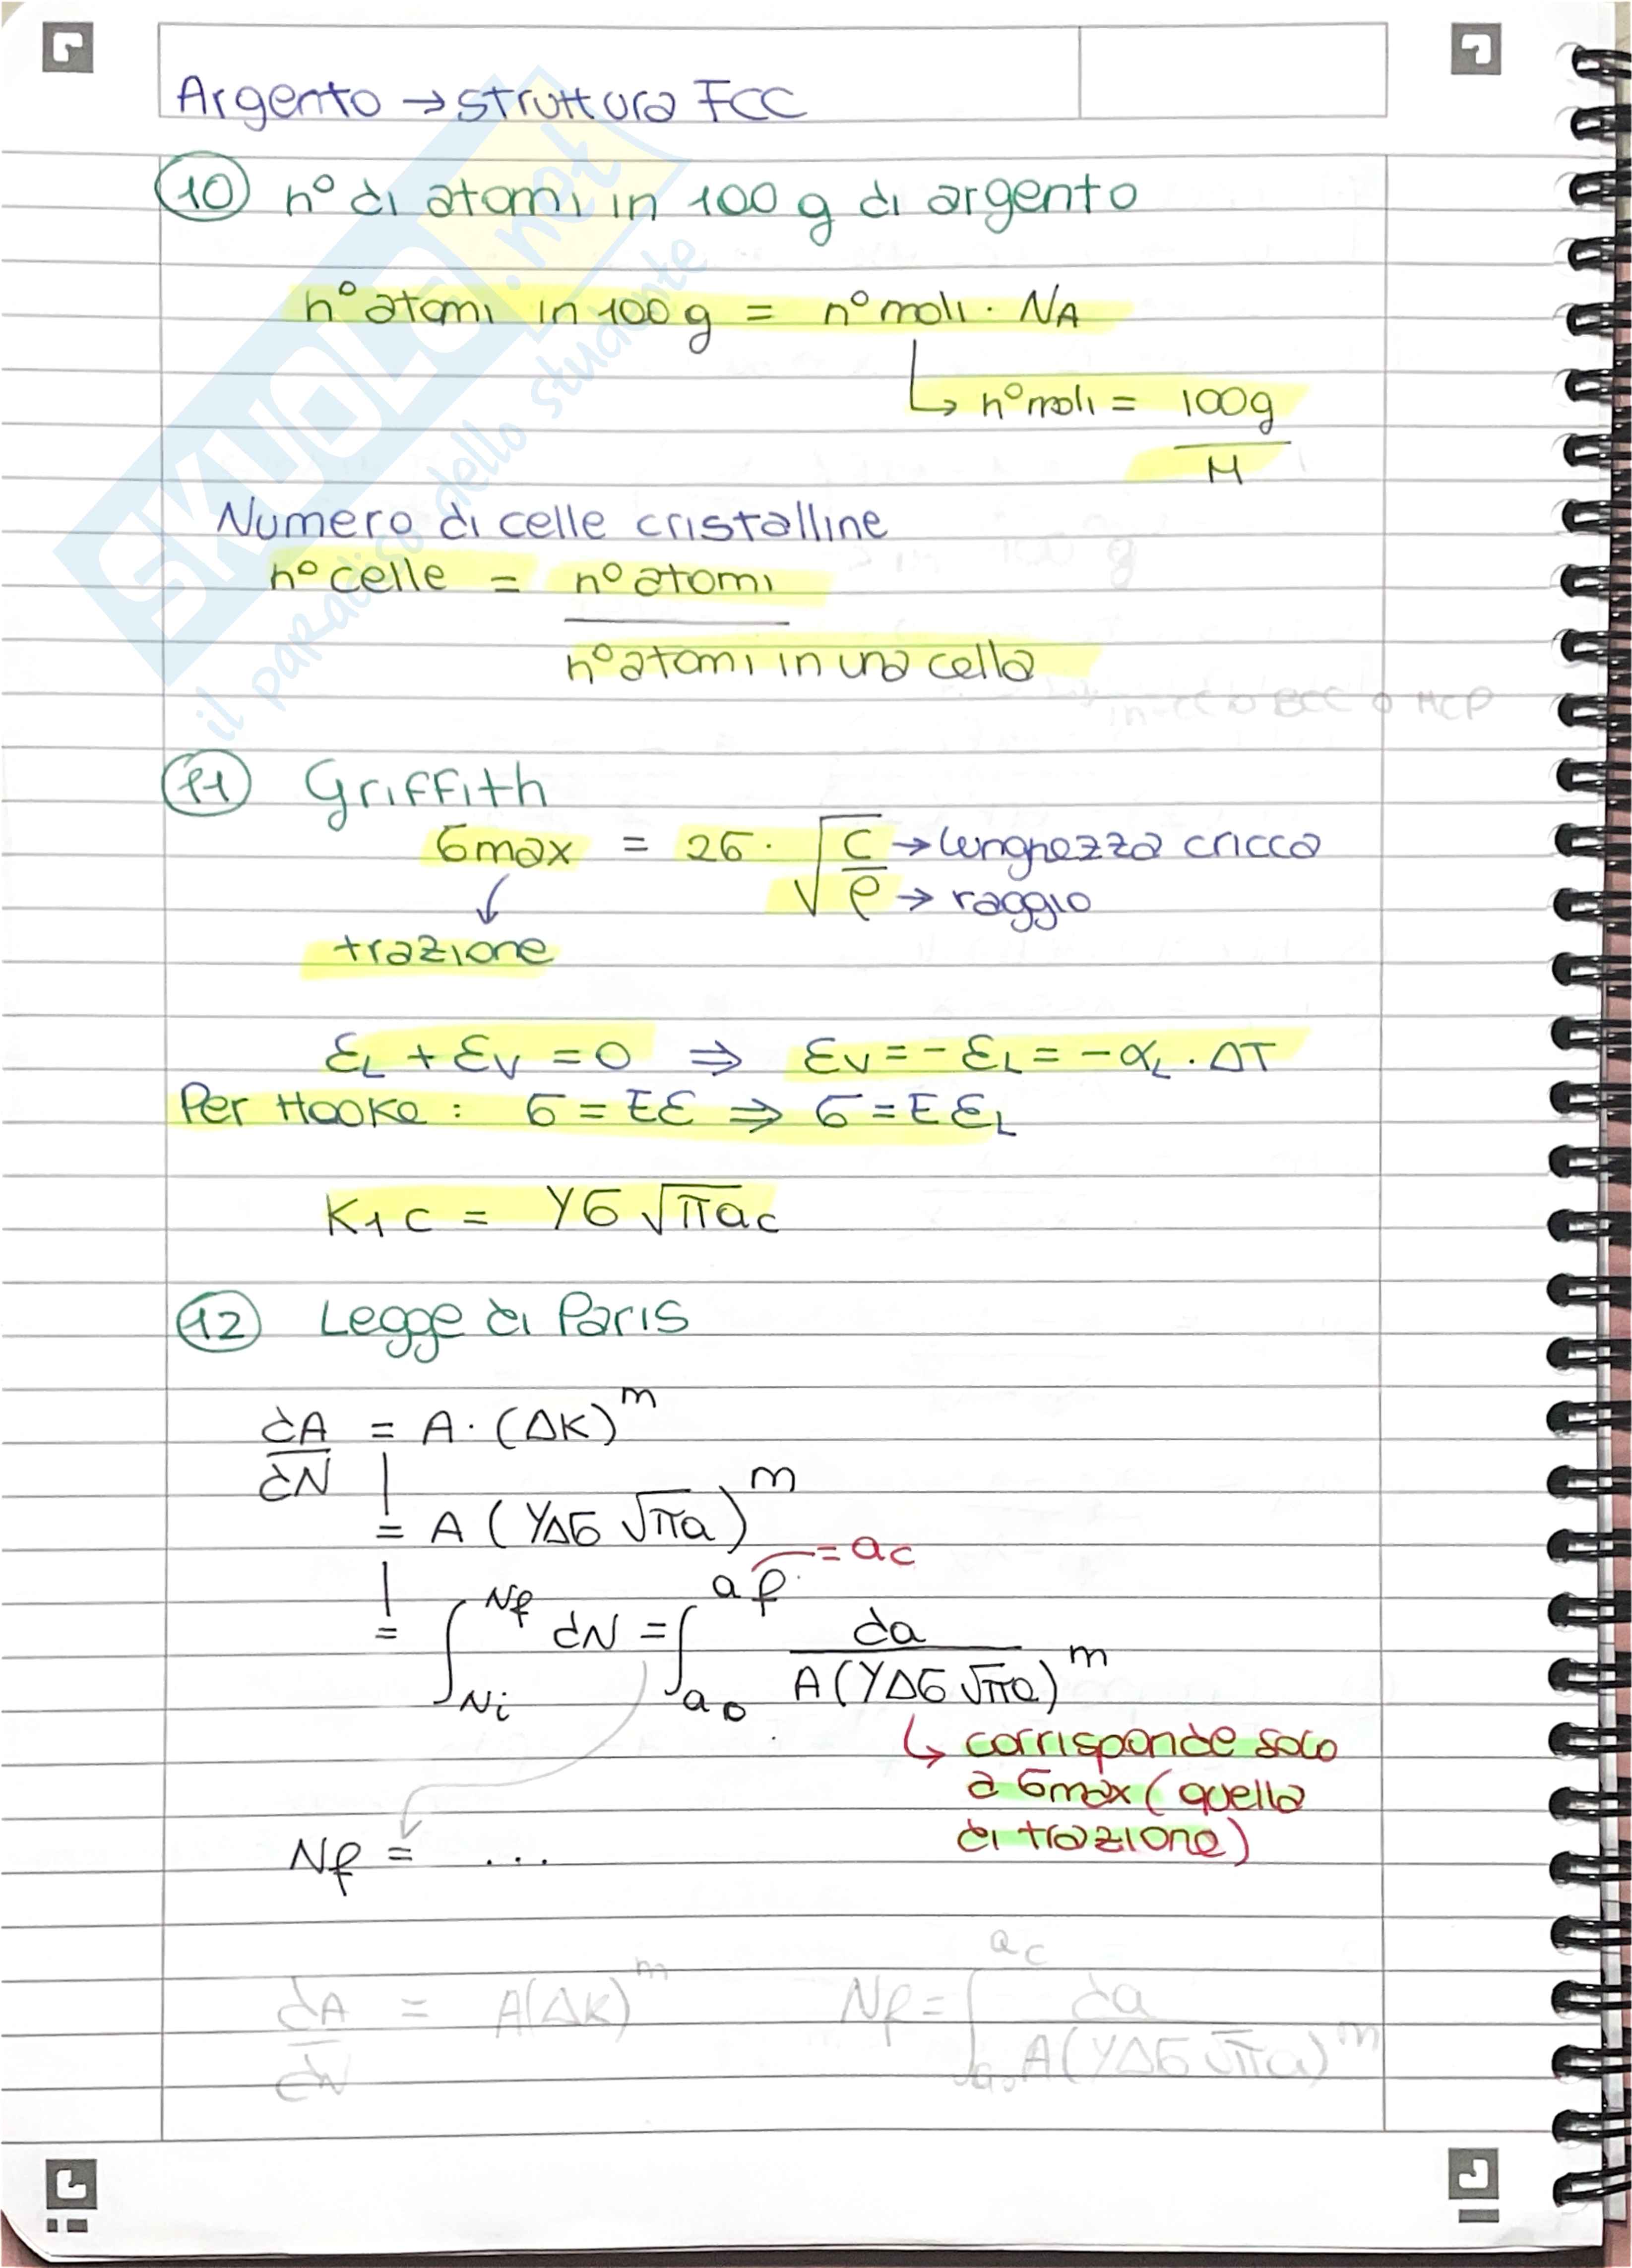 Argento → struttura FCC
10 n° di atomi in 100 g di argento
n° atomi in 100 g = n° moli · NA
↳ n° moli = 100g / M
Numero di celle cristalline
n° celle = n° atomi / n° atomi in una cella
11 Griffith
σmax = 2σ · √(c/ρ)
c → lunghezza cricca
ρ → raggio
trazione
εL + εV = 0 ⇒ εV = - εL = - αL · ΔT
Per Hooke : σ = Eε ⇒ σ = E εL
K1c = Yσ √πac
12 Legge di Paris
dA/dN = A · (ΔK)^m
= A (YΔσ √πa)^m
= ac
= ∫_Ni^Nf dN = ∫_a0^af da / A(YΔσ √πa)^m
↳ corrisponde solo
a σmax (quella
di trazione)
Nf = ...
dA/dN = A(ΔK)^m Nf = ∫_a0^ac da / A(YΔσ √πa)^m
SKUOLA.net
il paradiso dello studente